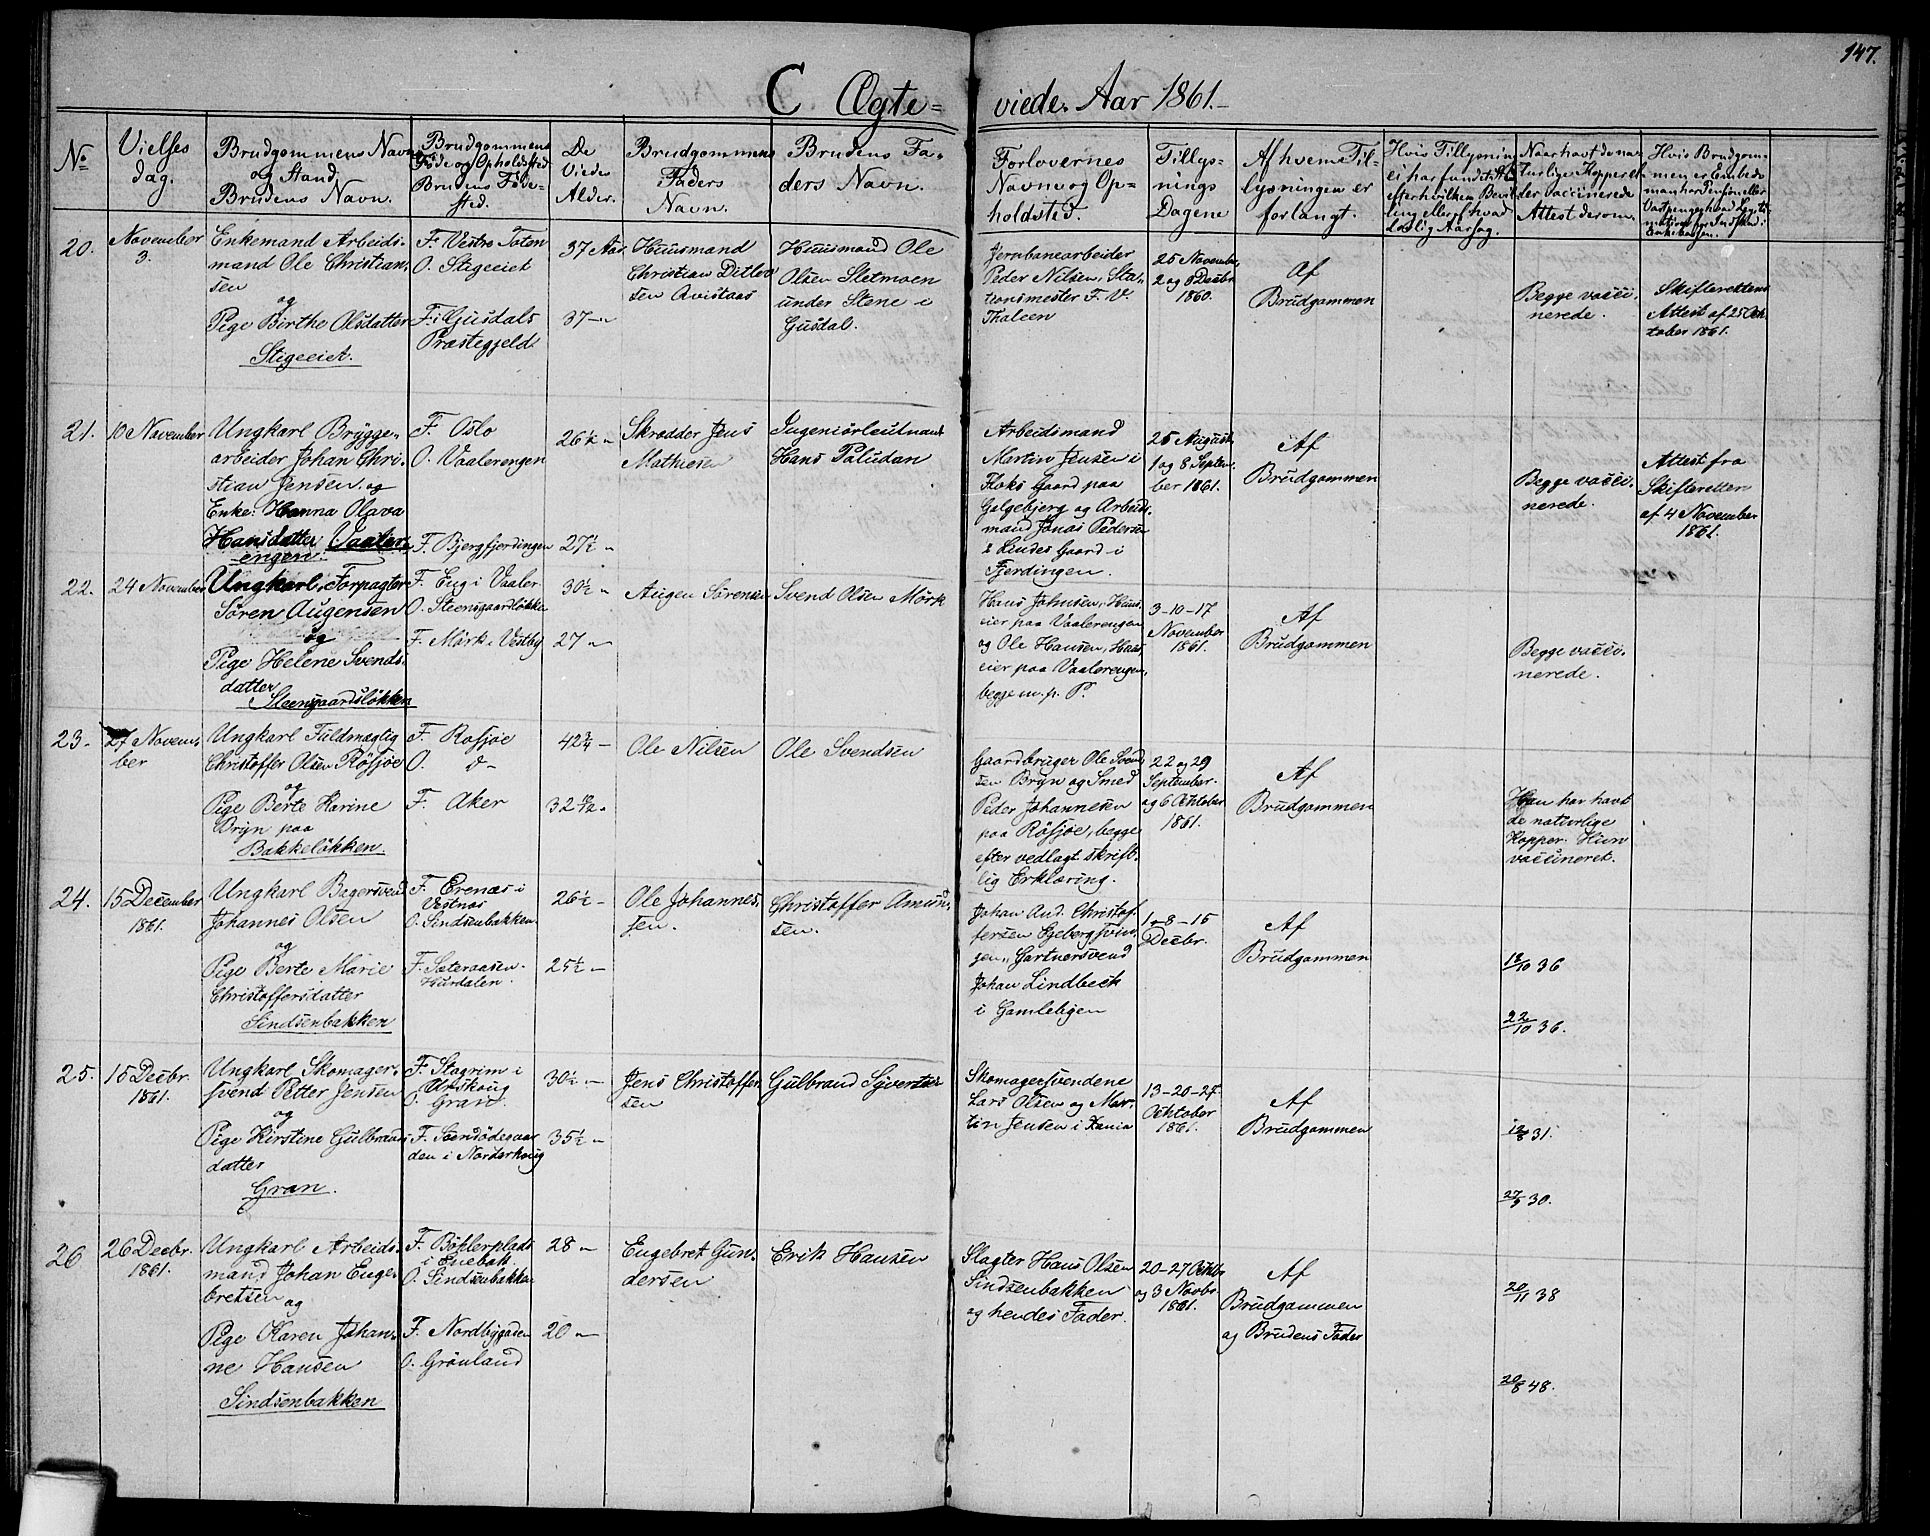 147.
C Ægte= viede. Aar 1861.
No
Vielses
dag.
Brudgommens Navn
og Stand.
Brudens Navn.
Brudgommens
Føde og Opholdssted
Brudens Føde-
sted.
De
Viedes
Alder.
Brudgommens
Faders
Navn.
Brudens Fa-
ders Navn.
Forlovernes
Navne og Op=
holdsted.
Tillys-
nings
Dagene
Af hvem Til-
lysningen er
forlangt.
Hvis Tillysning
ei har fundet Sted
efter hvilken Bevil
ling eller af hvad
Lovlig Aarsag.
Naar havt de na-
turlige Kopper el-
ler vaccinerede
Attest derom.
Hvis Brudgom-
men er Embeds
man har Pension eller
20.
November
3.
Enkemand Arbeids-
mand Ole Christian-
sen
og
Pige Birthe Olsdatter
Stigeeiet.
F. Vestre Toten
O. Stigeeiet
F. i Gusdals
Præstegjeld.
37 Aar
37 -
Huusmand
Christian Ditlev
sen Qvistaas
Huusmand Ole
Olsen Sletmoen
under Stene i
Gusdal.
Jernbanearbeider
Peder Nilsen, Sta-
tionsmester F. V.
Thaleen
25 November,
2 og 9 Decbr
1860.
Af
Brudgammen
Begge vacci-
nerede.
Skifterettens
Attest af 25 Ok-
tober 1861.
21.
10 November
Ungkarl Brygge-
arbeider Johan Chri-
stian Jensen og
Enke: Hanna Olava
Hansdatter Vaaler-
engen.
F. Oslo
O. Vaalerengen
F. Bjergfjerdingen
26½ -
27½ -
Skrædder Jens
Mathiesen
Ingeniörleutnant
Hans Paludan
Arbeidsmand
Martin Jensen i
Floks Gaard paa
Galgebjerg og Arbeids
mand Jonas Pedersen
i Lindes Gaard i
Fjerdingen.
25 August
1 og 8 Septem-
ber 1861.
Af
Brudgammen
Begge vacci-
nerede.
Attest fra
Skifteretten
af 4 November
1861.
22.
24 November
Ungkarl, Forpagter
Sören Augensen
og
Pige Helene Svends-
datter
Steensgaardslökken
F. Eng i Vaaler
O. Steensgaardslökken
F. Mörk i Vestby
30½ -
27 -
Augen Sörensen
Svend Olsen Mörk
Hans Johnsen, Huus-
eier paa Vaalerengen
og Ole Hansen, Huus-
eier paa Vaalerengen,
begge m. p. P.
3-10-17
November
1861.
Af
Brudgammen
Begge vacci-
nerede.
23.
27 Novem-
ber
Ungkarl Fuldmægtig
Christoffer Olsen Rösjöe
og
Pige Berte Karine
Bryn paa
Bakkelökken.
F. Rosjöe
O. d-
F. Aker
42¾ -
32 10/12 -
Ole Nilsen
Ole Svendsen
Gaardbruger Ole Svend
sen Bryn og Smed
Peder Johannesen
paa Rösjöe, begge
efter vedlagt skrift-
lig Erklæring.
22 og 29
September
og 6 Oktober
1861.
Af
Brudgammen
Han har havt
de naturlige
Kopper. Hun
vaccineret.
24.
15 December
1861.
Ungkarl Bagersvend
Johannes Olsen
og
Pige Berte Marie
Christoffersdatter
Sindsenbakken
F. Erenæs i
Vestnæs
O. Sindsenbakken
F. Sateraasen
Hurdalen.
26½ -
25½ -
Ole Johannes-
sen.
Christoffer Amund-
sen.
Johan And. Christof-
fersen Egebergsvin-
gen, Gartnersvend
Johan Lindbeck
i Gamlebyen
1-8-15
Decbr.
Af
Brudgammen
36
22/10 36.
25.
15 Decbr.
1861.
Ungkarl Skomager-
svend Petter Jensen
og
Pige Kirstine Gulbrands
datter
Gran.
F. Slagrim i
Urskoug
O. Gran.
F. Svendödegaar
den i Norderhoug
30½ -
35½ -
Jens Christoffer-
sen
Gulbrand Syvertsen
Skomagersvendene
Lars Olsen og Mar-
tin Jensen i Xania
13-20-27
Oktober
1861.
Af
Brudgammen
31.
30.
26
26 Decbr.
1861.
Ungkarl Arbeids-
mand Johan Enge-
bretsen og
Pige Karen Johan-
ne Hansen
Sindsenbakken
F. Böhlerplads
i Enebak
O. Sindsenbakken
F. Nordbygaden
O. Grönland
28 -
20 -
Engebret Gun-
dersen
Erik Hansen
Slagter Hans Olsen
Sindsenbakken
og hendes Fader.
20-27 Oktbr
og 3 Novbr
1861.
Af
Brudgammen
og Brudens Fader
20/11 38
20/8 48.